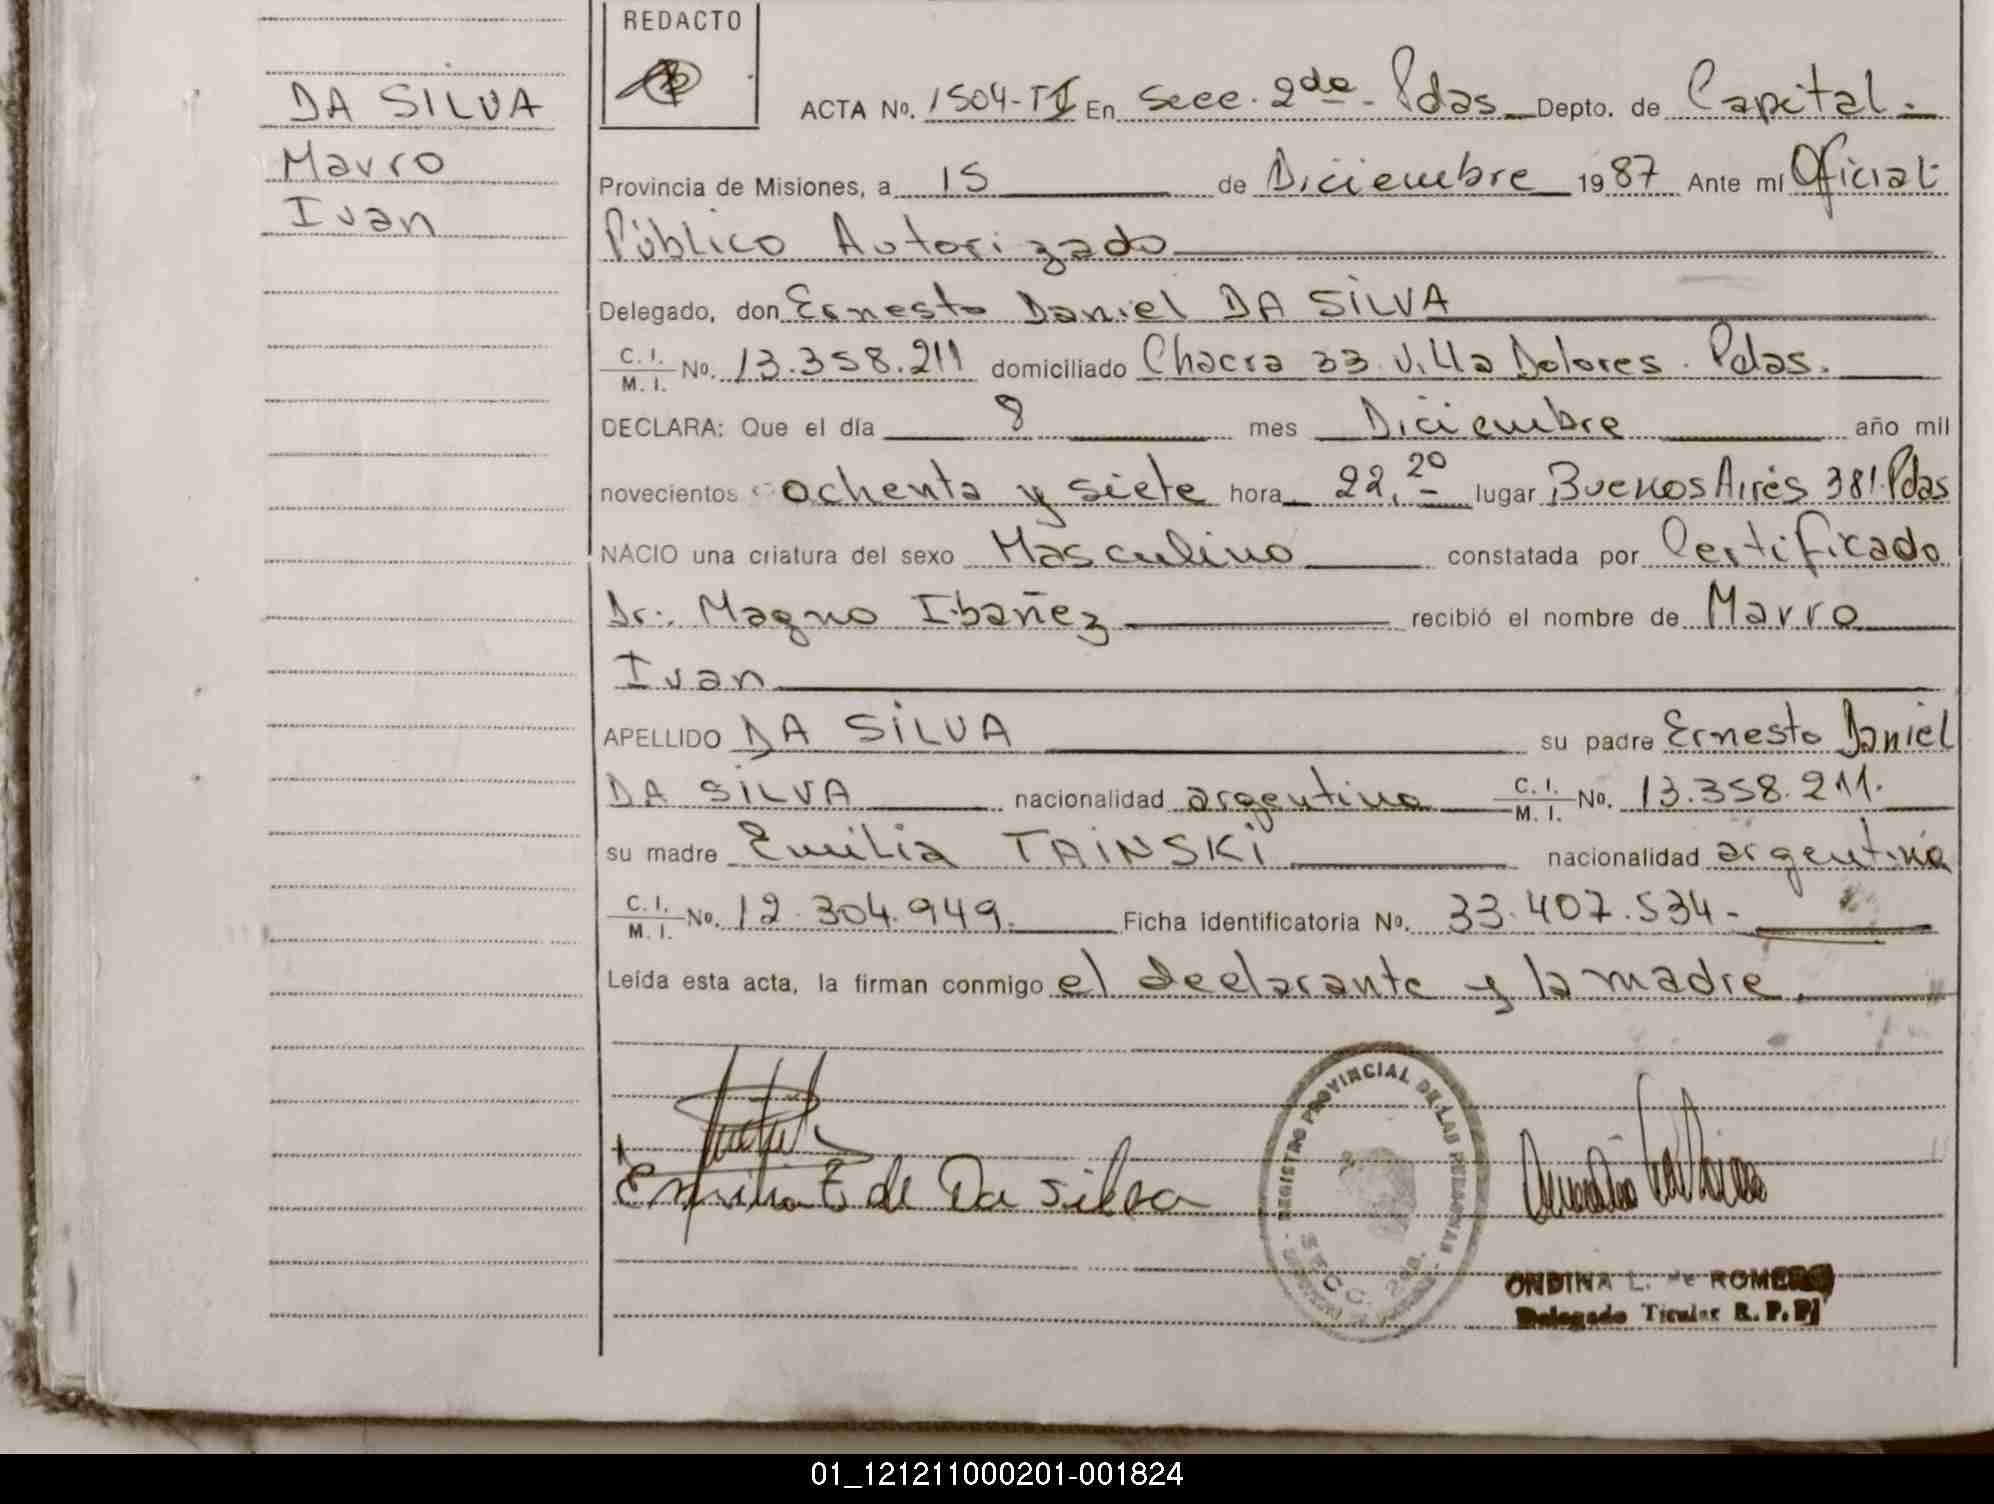 REDACTO
DA SILVA
Mauro
Ivan
ACTA No. 1504-TI En Secc. 2da - Pdas Depto. de Capital.
Provincia de Misiones, a 15 de Diciembre 1987 Ante mí Oficial
Público Autorizado
Delegado, don Ernesto Daniel DA SILVA
C. I. / M. I. No. 13.358.211 domiciliado Chacra 33 Villa Dolores. Pdas.
DECLARA: Que el día 8 mes Diciembre año mil
novecientos ochenta y siete hora 22,20 lugar Buenos Aires 381. Pdas
NACIO una criatura del sexo Masculino constatada por Certificado
Dr. Magno Ibañez recibió el nombre de Mauro
Ivan
APELLIDO DA SILVA su padre Ernesto Daniel
DA SILVA nacionalidad argentino C. I. / M. I. No. 13.358.211.
su madre Emilia TAINSKI nacionalidad argentina
C. I. / M. I. No. 12.304.949. Ficha identificatoria No. 33.407.534-
Leída esta acta, la firman conmigo el declarante y la madre.
Emilia T de Da Silva
REGISTRO PROVINCIAL DE LAS PERSONAS
SECC. 2da.
ONDINA L. de ROMERO
Delegado Titular R. P. P.
01_121211000201-001824